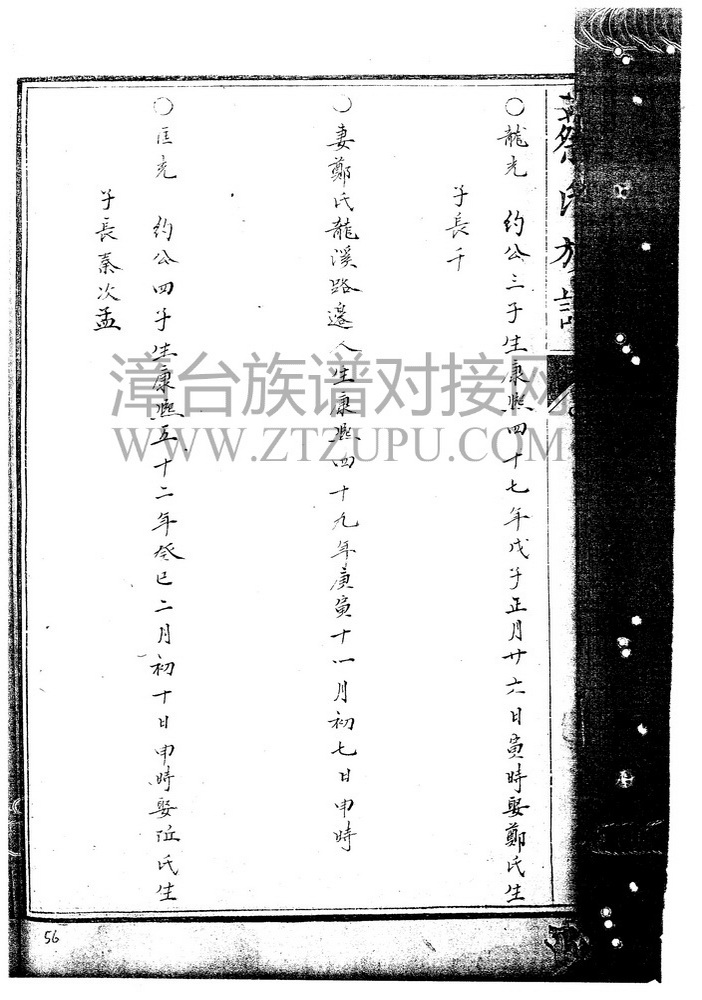 蔡氏族譜
〇龍光 約公三子生康熙四十七年戊子正月廿六日寅時娶鄭氏生
子長千
〇妻鄭氏龍溪路邊人生康熙四十九年庚寅十一月初七日申時
〇匡光 約公四子生康熙五十二年癸巳二月初十日申時娶 氏生
子長秦次孟
漳台族谱对接网
WWW.ZTZUPU.COM
56